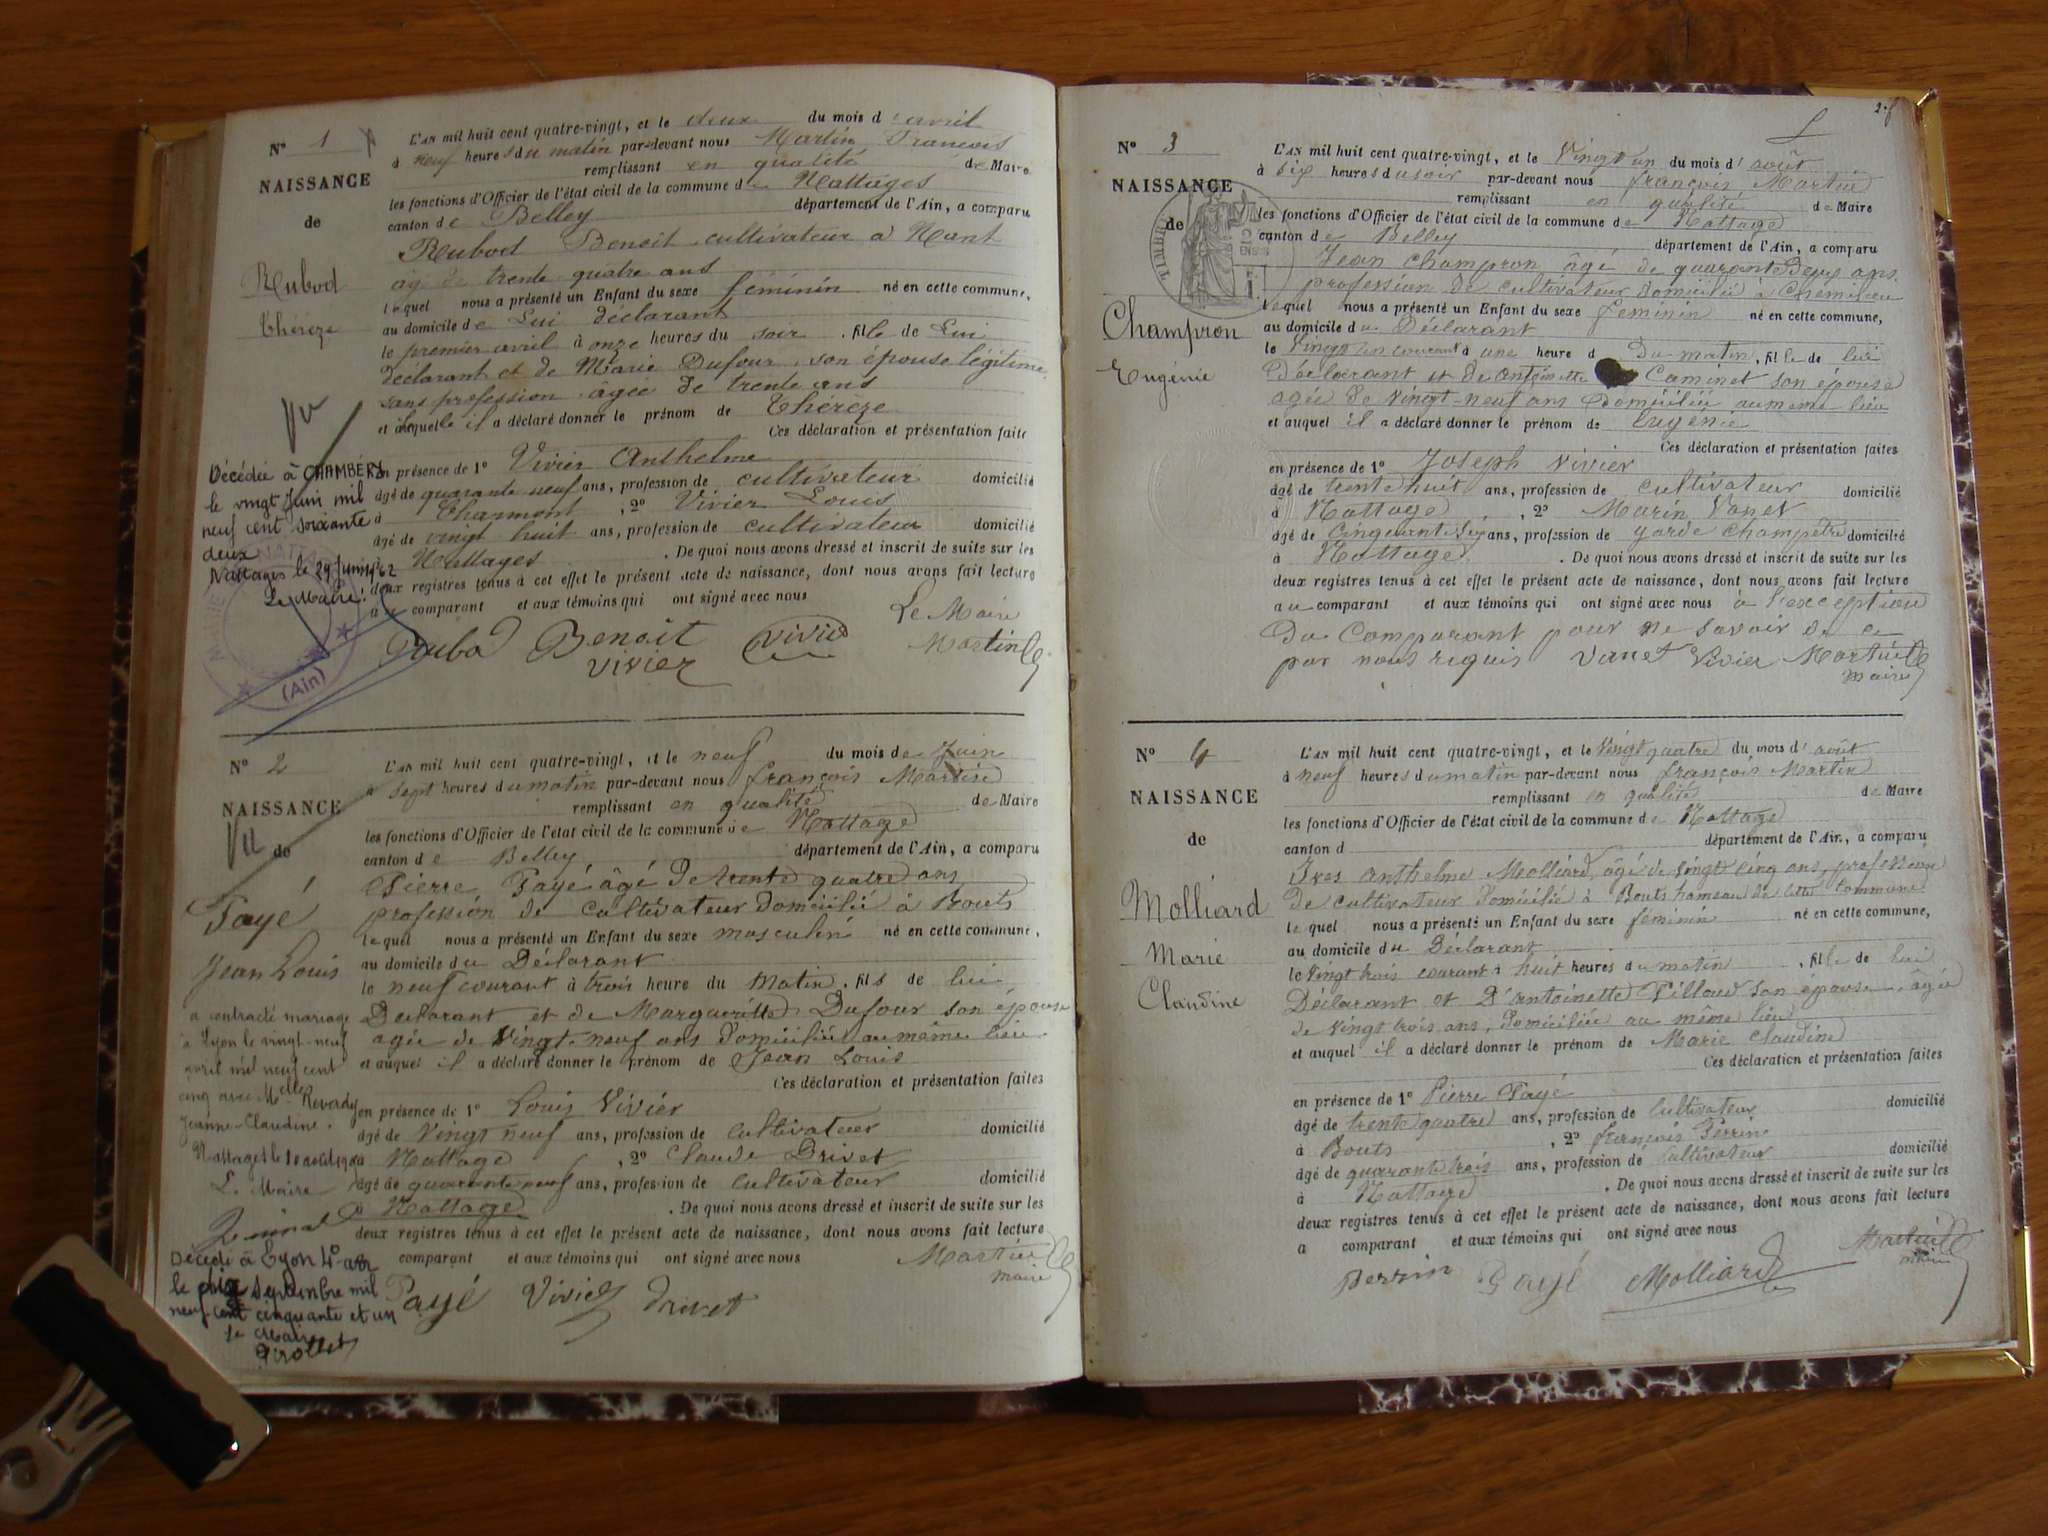 N° 1
NAISSANCE
de
Rubod
Thérèze
Vu
Décédée à CHAMBÉRY
le vingt Juin mil
neuf cent soixante
deux
Nattages le 29 Juin 1962
Le Maire:
MAIRIE
(Ain)
L'AN mil huit cent quatre-vingt, et le deux du mois d'avril
à neuf heures du matin par-devant nous Martin François
remplissant en qualité de Maire
les fonctions d'Officier de l'état civil de la commune de Nattages
canton de Belley département de l'Ain, a comparu
Rubod Benoit cultivateur à Nant
âgé de trente quatre ans
lequel nous a présenté un Enfant du sexe féminin né en cette commune,
au domicile de Lui déclarant
le premier avril à onze heures du soir, fille de Lui
déclarant et de Marie Dufour, son épouse légitime,
sans profession âgée de trente ans
et auquel il a déclaré donner le prénom de Thérèze
Ces déclaration et présentation faite
en présence de 1° Vivier Anthelme
âgé de quarante neuf ans, profession de cultivateur domicilié
à Charmont, 2° Vivier Louis
âgé de vingt huit ans, profession de cultivateur domicilié
Nattages. De quoi nous avons dressé et inscrit de suite sur les
deux registres tenus à cet effet le présent acte de naissance, dont nous avons fait lecture
au comparant et aux témoins qui ont signé avec nous
Le Maire
Rubod Benoit Vivier Martin
Vivier
N° 2
NAISSANCE
de
Vu
Payé
Jean Louis
a contracté mariage
à Lyon le vingt-neuf
avril mil neuf cent
cinq avec Melle Reverdy
Jeanne-Claudine.
Le Maire
Décédé à Lyon 4° arr
le dix Septembre mil
neuf cent cinquante et un
Le Maire
L'AN mil huit cent quatre-vingt, et le neuf du mois de Juin
à sept heures du matin par-devant nous françois Martin
remplissant en qualité de Maire
les fonctions d'Officier de l'état civil de la commune de Nattage
canton de Belley département de l'Ain, a comparu
Pierre Payé âgé de trente quatre ans
profession de cultivateur domicilié à Bouts
lequel nous a présenté un Enfant du sexe masculin né en cette commune,
au domicile du Déclarant
le neuf courant à trois heure du Matin, fils de lui
Déclarant et de Marguerite Dufour son épouse
agée de Vingt-neuf ans Domiciliée au même lieu
et auquel il a déclaré donner le prénom de Jean Louis
Ces déclaration et présentation faites
en présence de 1° Louis Vivier
âgé de Vingt neuf ans, profession de cultivateur domicilié
à Nattage, 2° Claude Drivet
âgé de quarante neuf ans, profession de cultivateur domicilié
à Nattage. De quoi nous avons dressé et inscrit de suite sur les
deux registres tenus à cet effet le présent acte de naissance, dont nous avons fait lecture
comparant et aux témoins qui ont signé avec nous Martin
maire
Payé Vivier Drivet
N° 3
NAISSANCE
de
TIMBRE
Champron
Eugénie
L'AN mil huit cent quatre-vingt, et le Vingt un du mois d'août
à six heures du soir par-devant nous françois Martin
remplissant en qualité de Maire
les fonctions d'Officier de l'état civil de la commune de Nattage
canton de Belley département de l'Ain, a comparu
Jean Champron âgé de quarante Deux ans
profession de cultivateur domicilié à Chemillieu
lequel nous a présenté un Enfant du sexe féminin né en cette commune,
au domicile du Déclarant
le Vingt un courant à une heure d Du matin, fille de lui
Déclarant et de Antoinette Caminet son épouse
agée de Vingt-neuf ans Domiciliée au meme lieu
et auquel il a déclaré donner le prénom de Eugénie
Ces déclaration et présentation faites
en présence de 1° Joseph Vivier
âgé de trente huit ans, profession de cultivateur domicilié
à Nattage, 2° Marin Vanet
âgé de Cinquante Six ans, profession de garde champêtre domicilié
à Nattage. De quoi nous avons dressé et inscrit de suite sur les
deux registres tenus à cet effet le présent acte de naissance, dont nous avons fait lecture
au comparant et aux témoins qui ont signé avec nous à l'exception
Du Comparant pour ne savoir de ce
par nous requis Vanet Vivier Martin
maire
N° 4
NAISSANCE
de
Molliard
Marie
Claudine
L'AN mil huit cent quatre-vingt, et le Vingt quatre du mois d'août
à neuf heures du matin par-devant nous françois Martin
remplissant en qualité de Maire
les fonctions d'Officier de l'état civil de la commune de Nattage
canton d département de l'Ain, a comparu
Yves Anthelme Molliard, âgé de vingt cinq ans, profession
De cultivateur Domicilié à Bouts hameau de cette commune
lequel nous a présenté un Enfant du sexe féminin né en cette commune,
au domicile du Déclarant
le Vingt trois courant à huit heures du matin, fille de lui
Déclarant et D'antoinette Pilloud son épouse, âgée
de vingt trois ans, Domiciliée au même lieu
et auquel il a déclaré donner le prénom de Marie Claudine
Ces déclaration et présentation faites
en présence de 1° Pierre Payé
âgé de trente quatre ans, profession de Cultivateur domicilié
à Bouts, 2° françois Perrin
âgé de quarante trois ans, profession de cultivateur domicilié
à Nattage. De quoi nous avons dressé et inscrit de suite sur les
deux registres tenus à cet effet le présent acte de naissance, dont nous avons fait lecture
a comparant et aux témoins qui ont signé avec nous
Perrin Payé Molliard Martin
maire